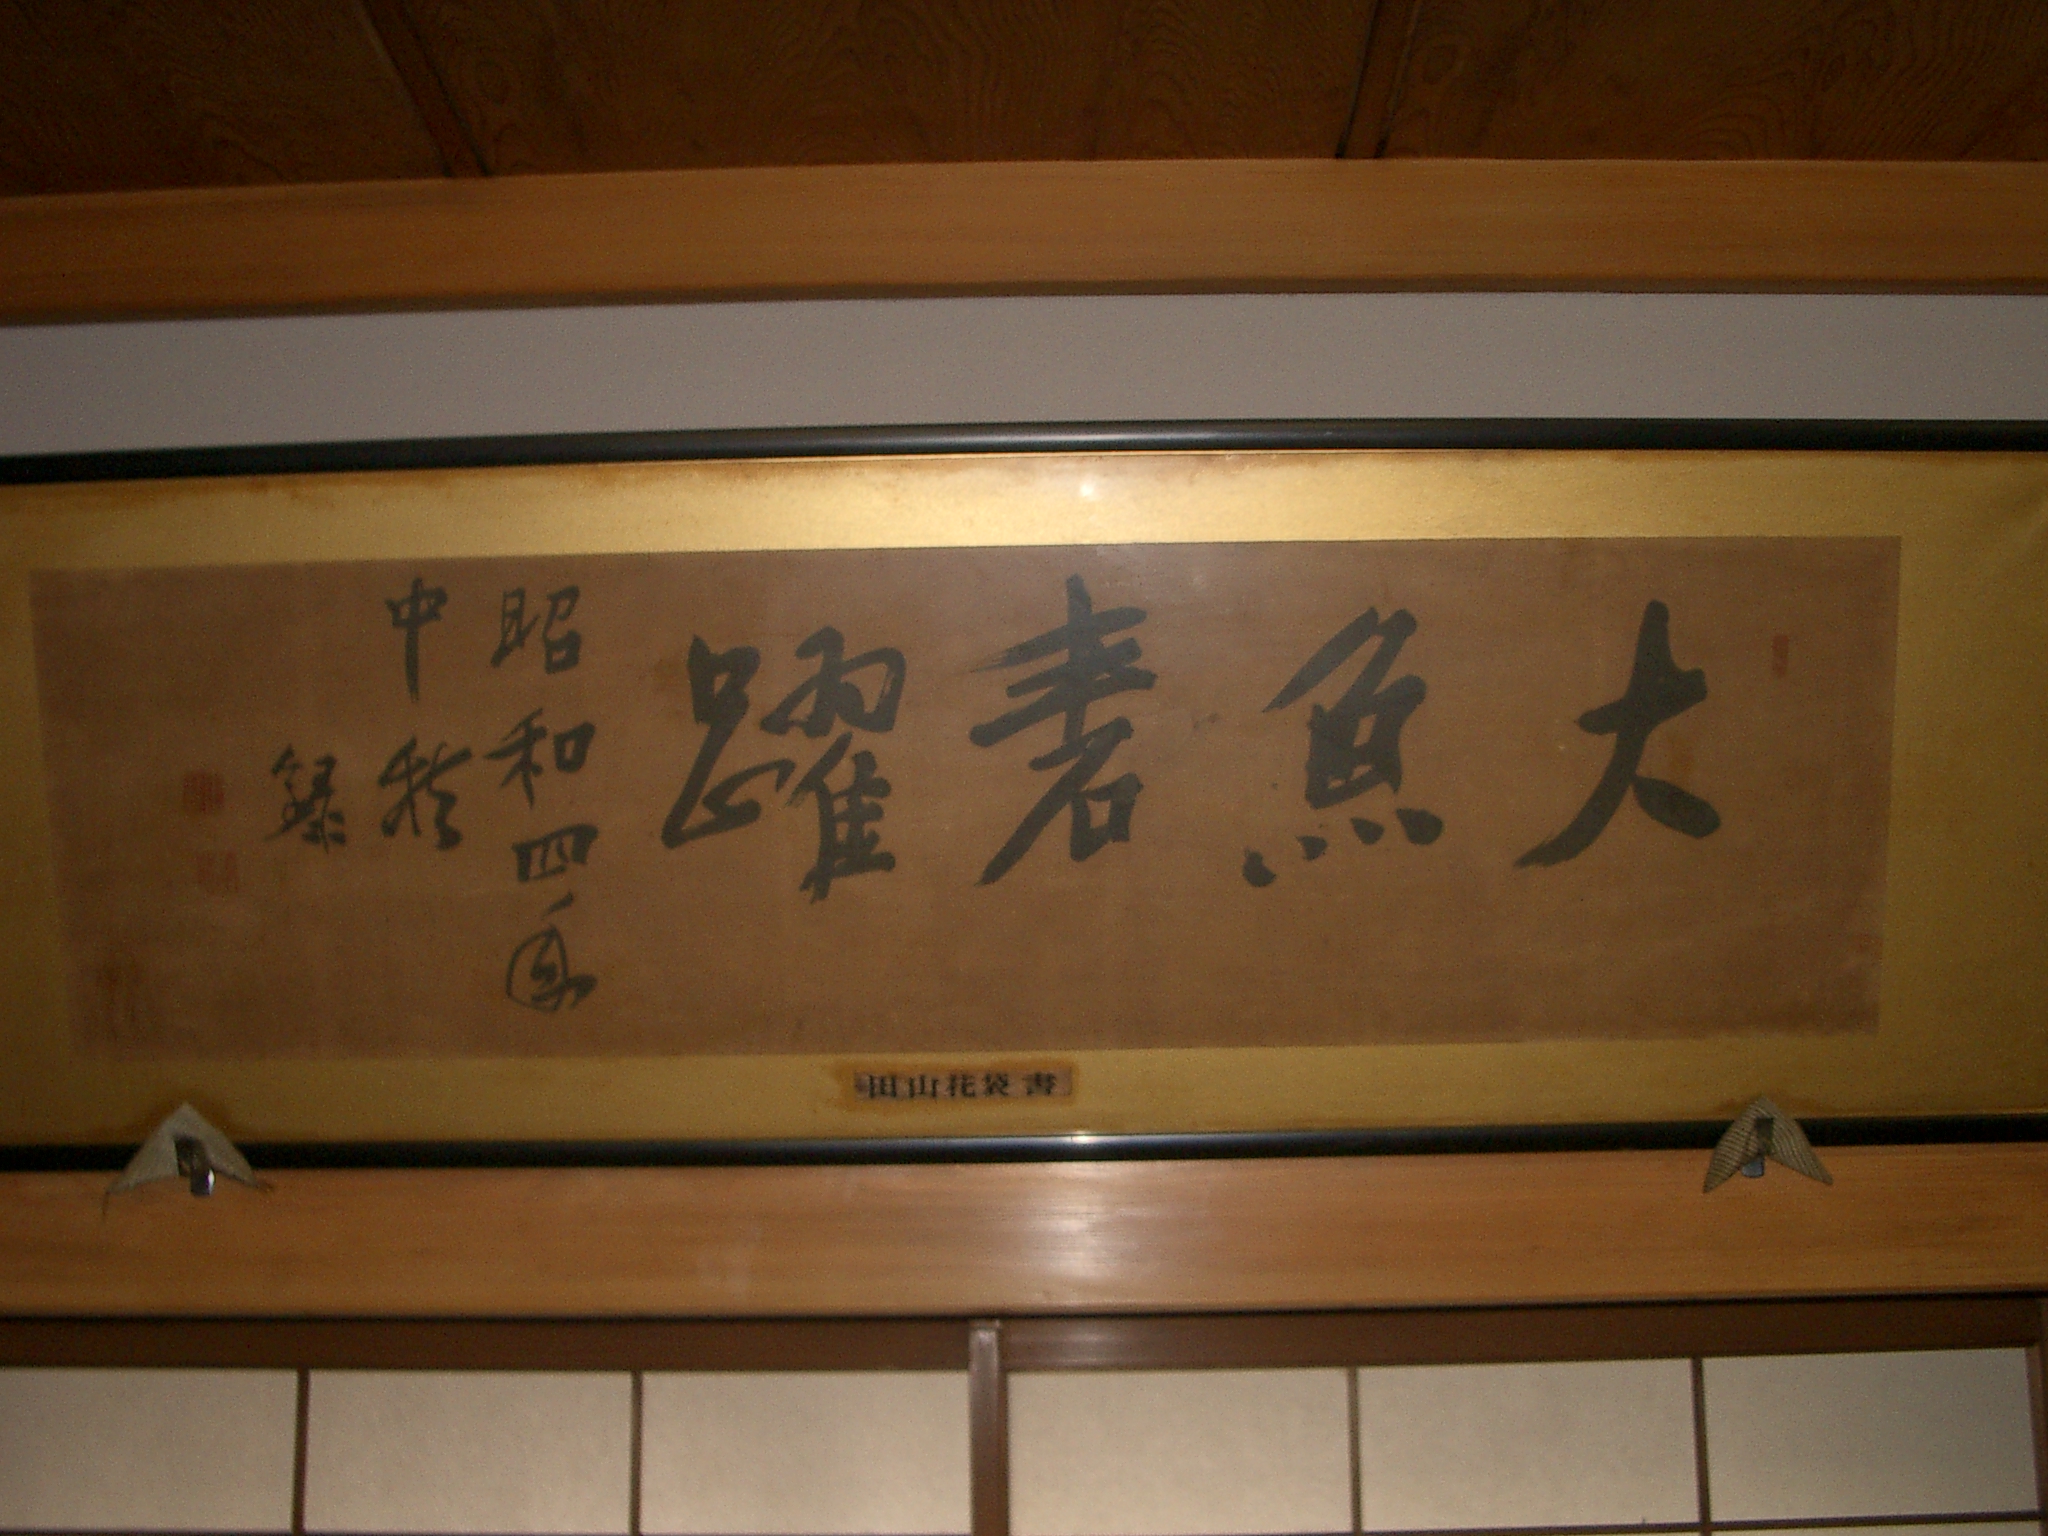 大魚砉躍
昭和四年
中秋
録
田山花袋 書